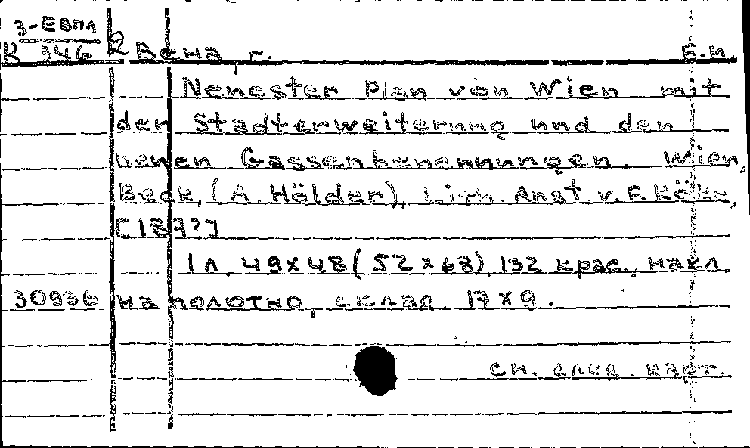 3-ЕВПЛ
К 346 2 Вена, г. Е.н.
Neuester Plan von Wien mit
der Stadterweiterung und den
neuen Gassenbenennungen. Wien,
Beck, (A. Hölder), Lith. Anst. v. F. Köke,
[187?]
1 л. 49x48 (52x68) 132 крас., накл.
30936 на полотно, склад. 17x9.
см. след. карт.